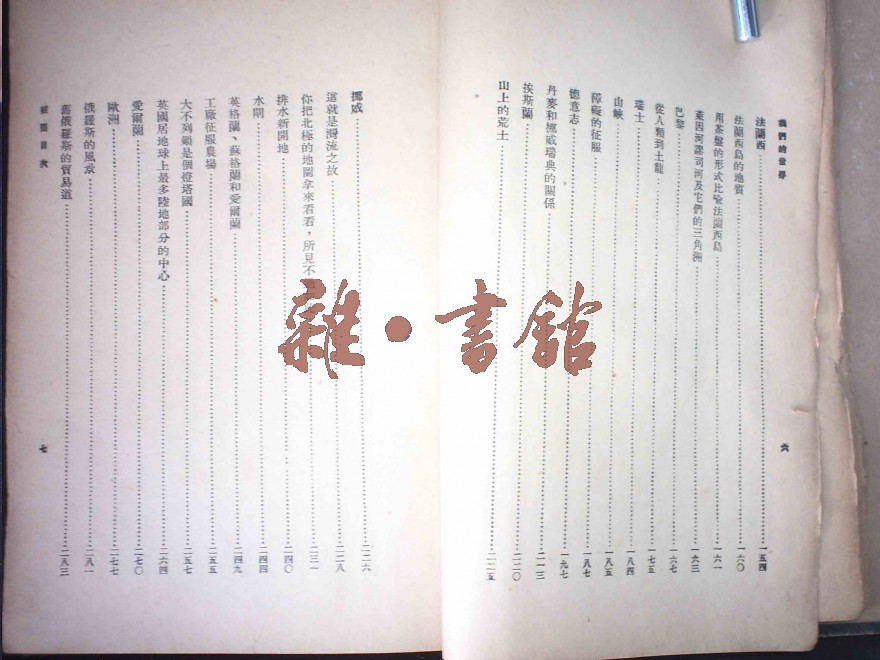 我們的世界
法蘭西……一五四
法蘭西島的地質……一六〇
用茶盤的形式比喻法蘭西島……一六一
萊因河謬司河及它們的三角洲……一六三
巴黎……一六七
從人類到土龍……一七五
瑞士……一八四
山峽……一八五
障礙的征服……一八七
德意志……一九七
丹麥和挪威瑞典的關係……二一三
挨斯蘭……二二〇
山上的荒土……二二五
六
挪威……二二六
這就是灣流之故……二二八
你把北極的地圖拿來看看，所見不……二三一
排水新開地……二四〇
水閘……二四四
英格蘭、蘇格蘭和愛爾蘭……二四九
工廠征服農場……二五五
大不列顛是個燈塔國……二五七
英國居地球上最多陸地部分的中心……二六四
愛爾蘭……二七〇
歐洲……二七七
俄羅斯的風景……二八一
舊俄羅斯的貿易道……二八三
插圖目次
七
雜·書館